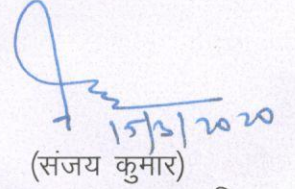 15/3/2020
(संजय कुमार)